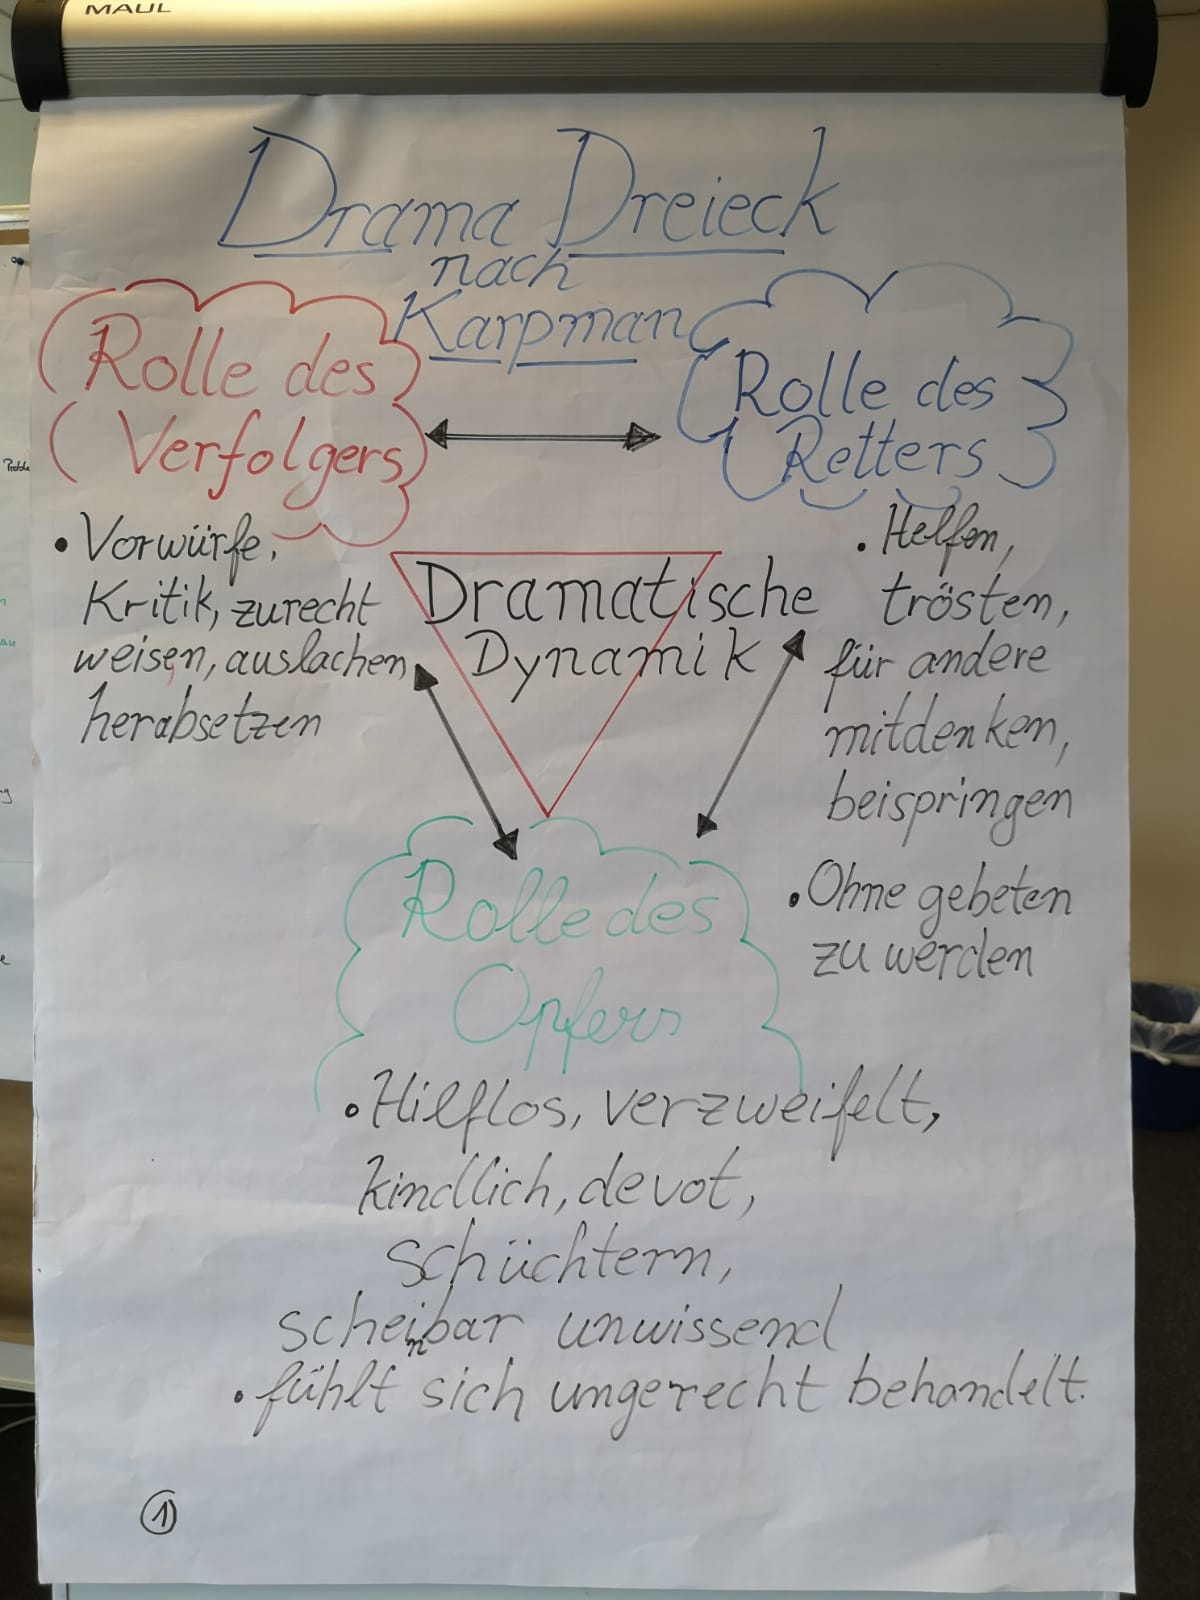 MAUL
Drama Dreieck
nach
Karpman
Rolle des
Verfolgers
Rolle des
Retters
• Vorwürfe,
Kritik, zurecht
weisen, auslachen
herabsetzen
Dramatische
Dynamik
• Helfen,
trösten,
für andere
mitdenken,
beispringen
• Ohne gebeten
zu werden
Rolle des
Opfers
• Hilflos, verzweifelt,
kindlich, devot,
schüchtern,
scheinbar unwissend
• fühlt sich ungerecht behandelt.
1